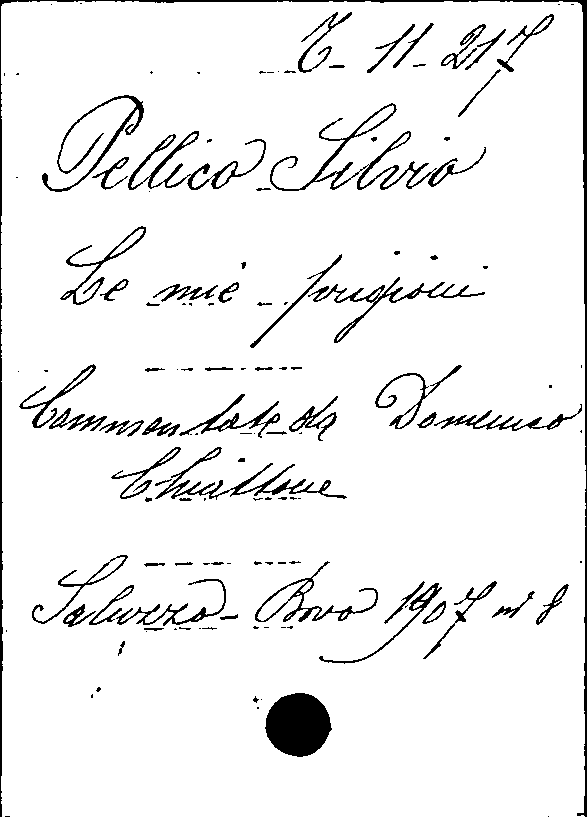 T-11-217
Pellico Silvio
Le mie prigioni
Commentate da Domenico
Chiattone
Saluzzo - Bovo 1907 in 8